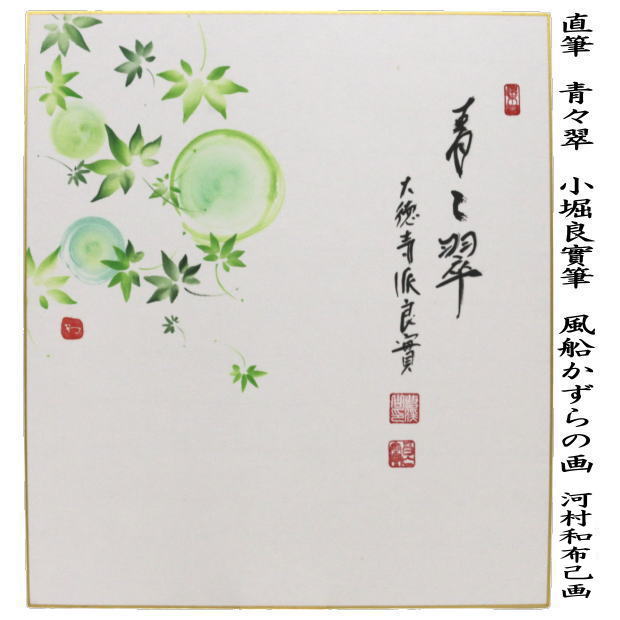 直筆 青々翠 小堀良實筆 風船かずらの画 河村和布己画
青々翠
大徳寺派良實